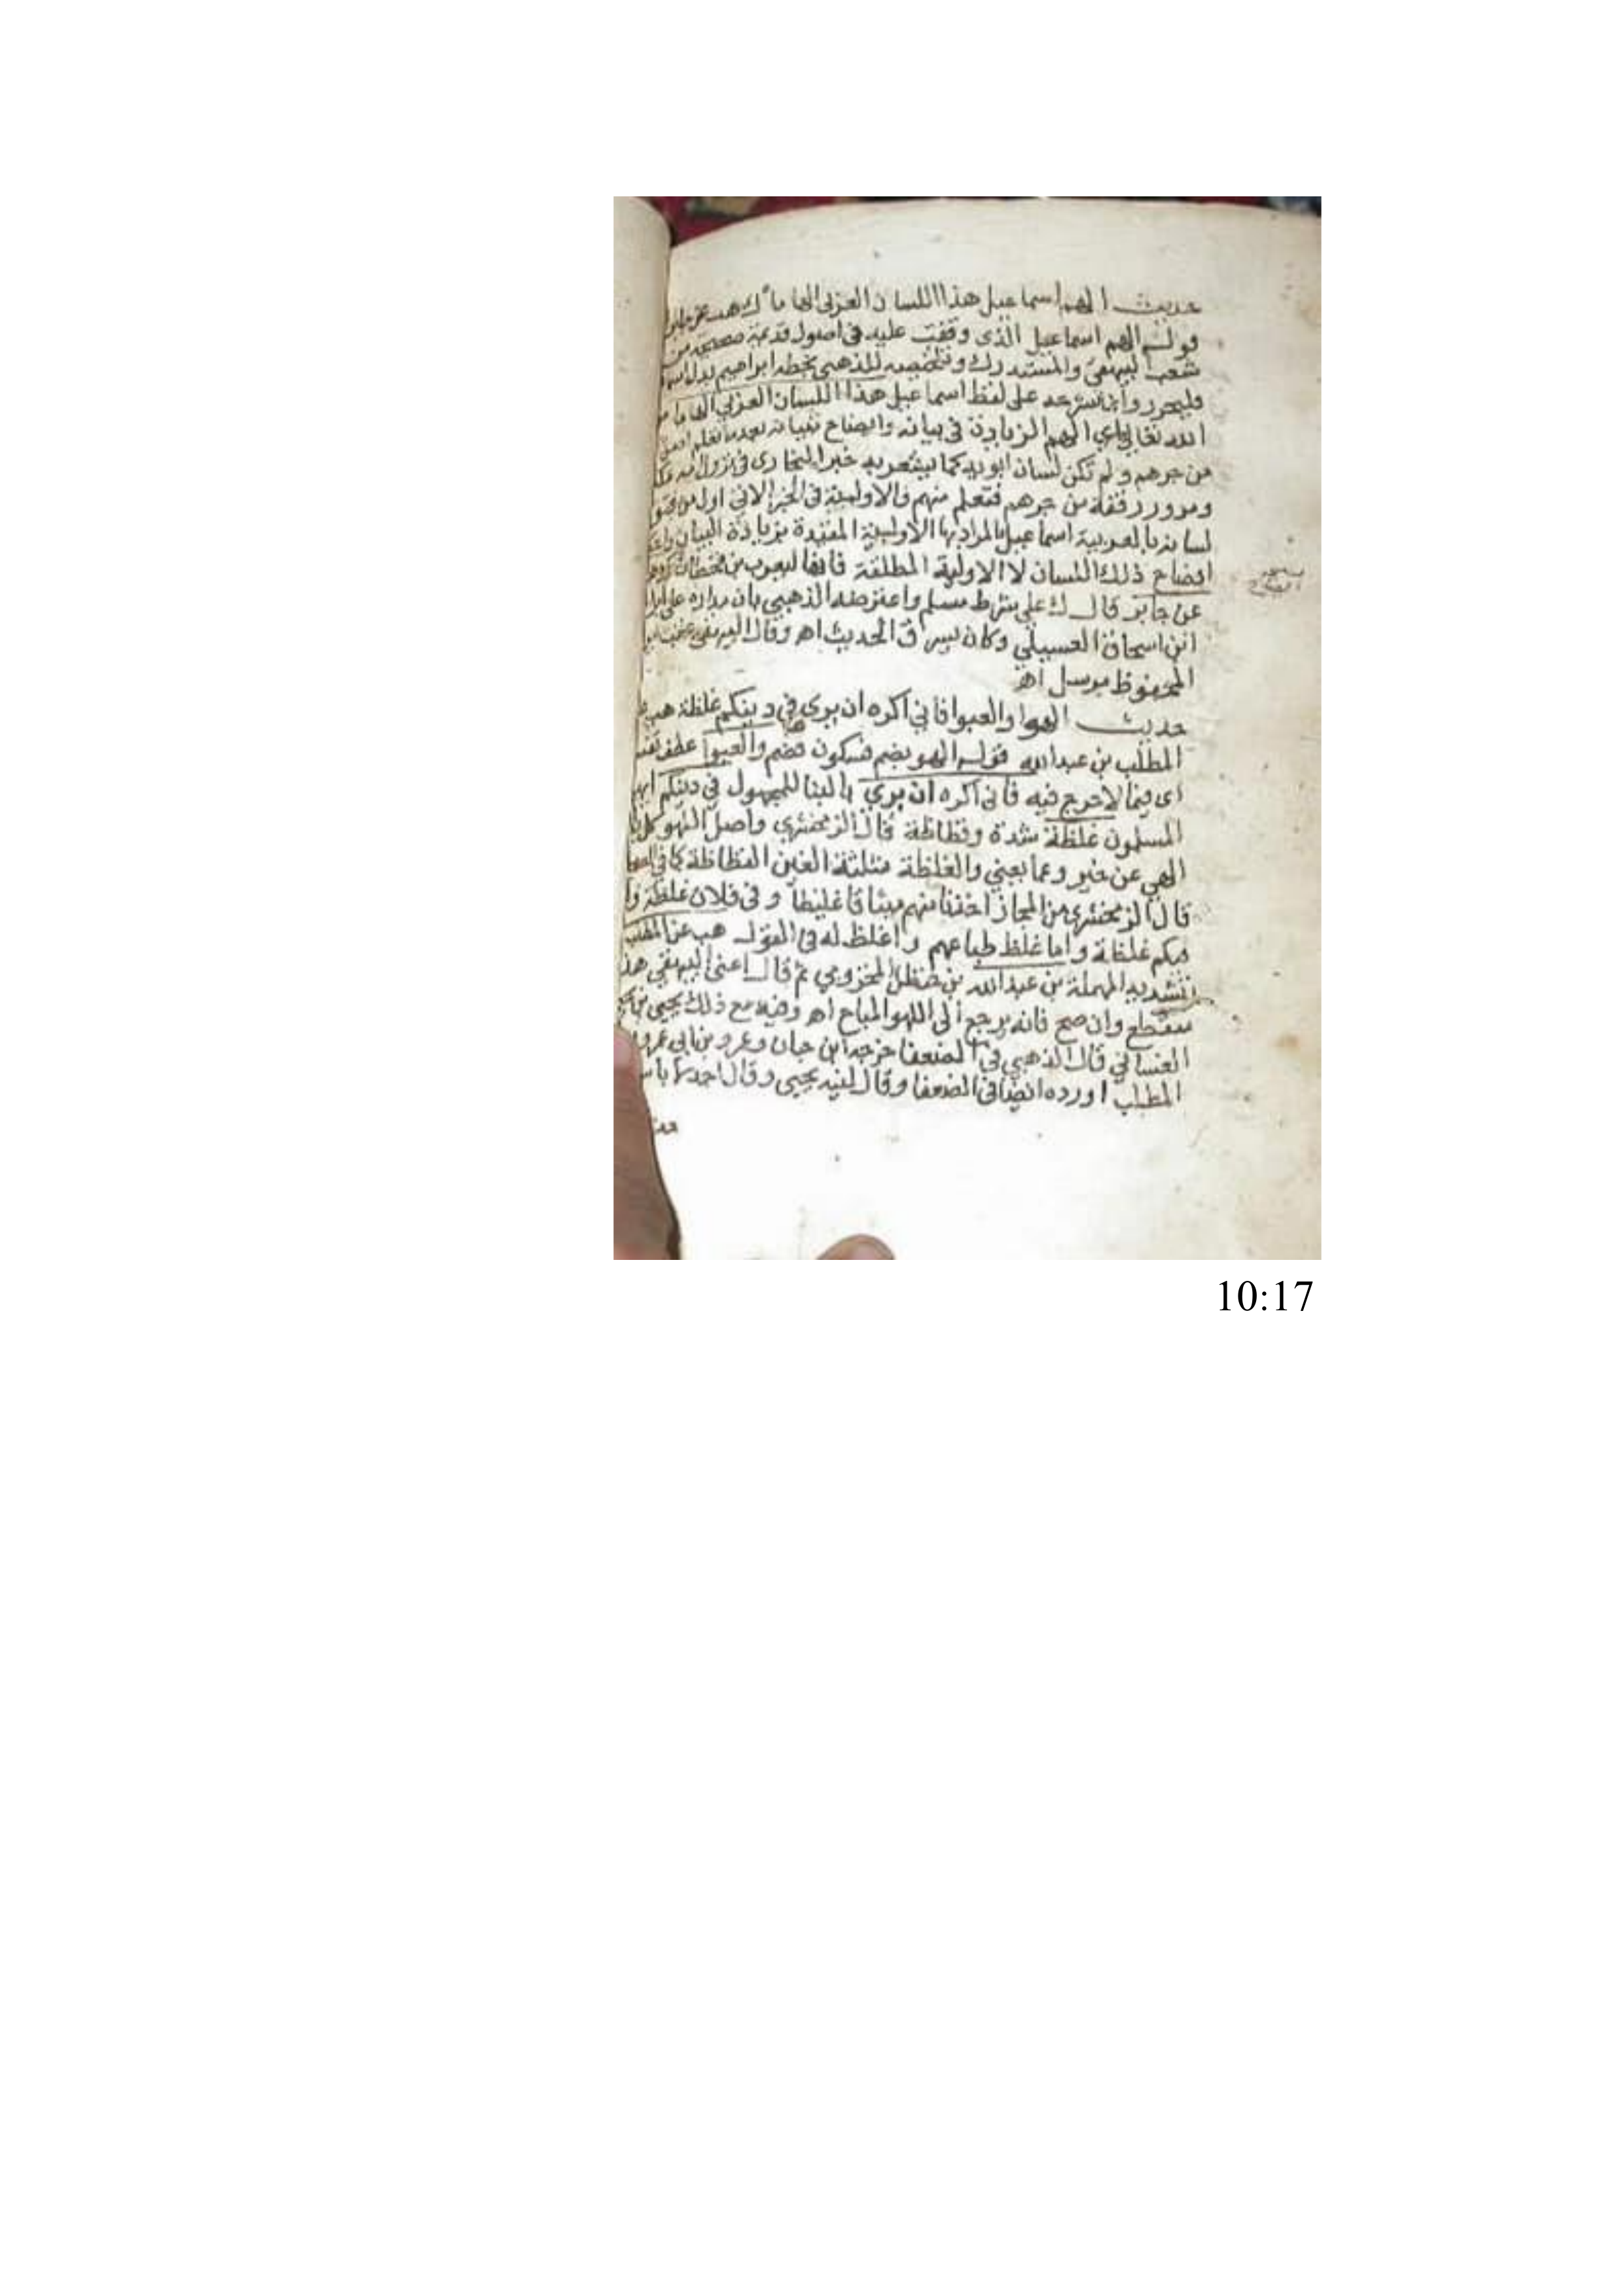 حديث الهم اسماعيل هذا اللسان العربى الهاما ك هب عن جابر
قوله الهم اسماعيل الذى وقفت عليه فى اصول قديمة صحيحة من
شعب البيهقى والمستدرك وتلخيصه للذهبى بخطه ابراهيم بدل
فليحرر واما شرحه على لفظ اسماعيل هذا اللسان العربي الهاما من
الله تعالى اي الهم الزيادة فى بيانه وايضاح تبيانه بعد ما تعلم
من جرهم ولم تكن لسان ابويه كما يشعر به خبر البخارى فى نزول
ومرور رفقة من جرهم فتعلم منهم والاولية فى الخبر الاتي اول من فتق
لسانه بالعربية اسماعيل المراد بها الاولية المقيدة بزيادة البيان
افصاح ذلك اللسان لا الاولية المطلقة فانها ليعرب بن قحطان
عن جابر قال ك على شرط مسلم واعترضه الذهبي بان مداره على
ابن اسحاق الغسيلي وكان يسرق الحديث اه وقال البيهقى عقب
المحفوظ مرسل اه
حديث الهوا والعبوا فاني اكره ان يرى في دينكم غلظة هب عن
المطلب بن عبد الله قوله الهو بضم فسكون فضم والعبوا عطف
اى فيما لا حرج فيه فانى اكره ان يري بالبنا للمجهول في دينكم ايها
المسلمون غلظة شدة وفظاظة قال الزمخشري واصل اللهو
الهي عن خير وعما يعني والغلظة مثلثة الغين الفظاظة كما في
قال الزمخشرى من المجاز اخذنا منهم ميثاقا غليظا وفى فلان غلظة
فيكم غلظة وما اغلظ طباعهم واغلظ له في القول هب عن المطلب
بتشديد المهملة بن عبد الله بن حنطب المخزومي ثم قال اعنى البيهقي هذا
منقطع وان صح فانه يرجع الى اللهو المباح اه وفيه مع ذلك يحيى بن
الغساني قال الذهبي في الضعفا خرجه ابن حبان وعمرو بن ابي عمرو
المطلب اورده ايضا فى الضعفا وقال لينه يحيى وقال احمد ما به باس
10:17